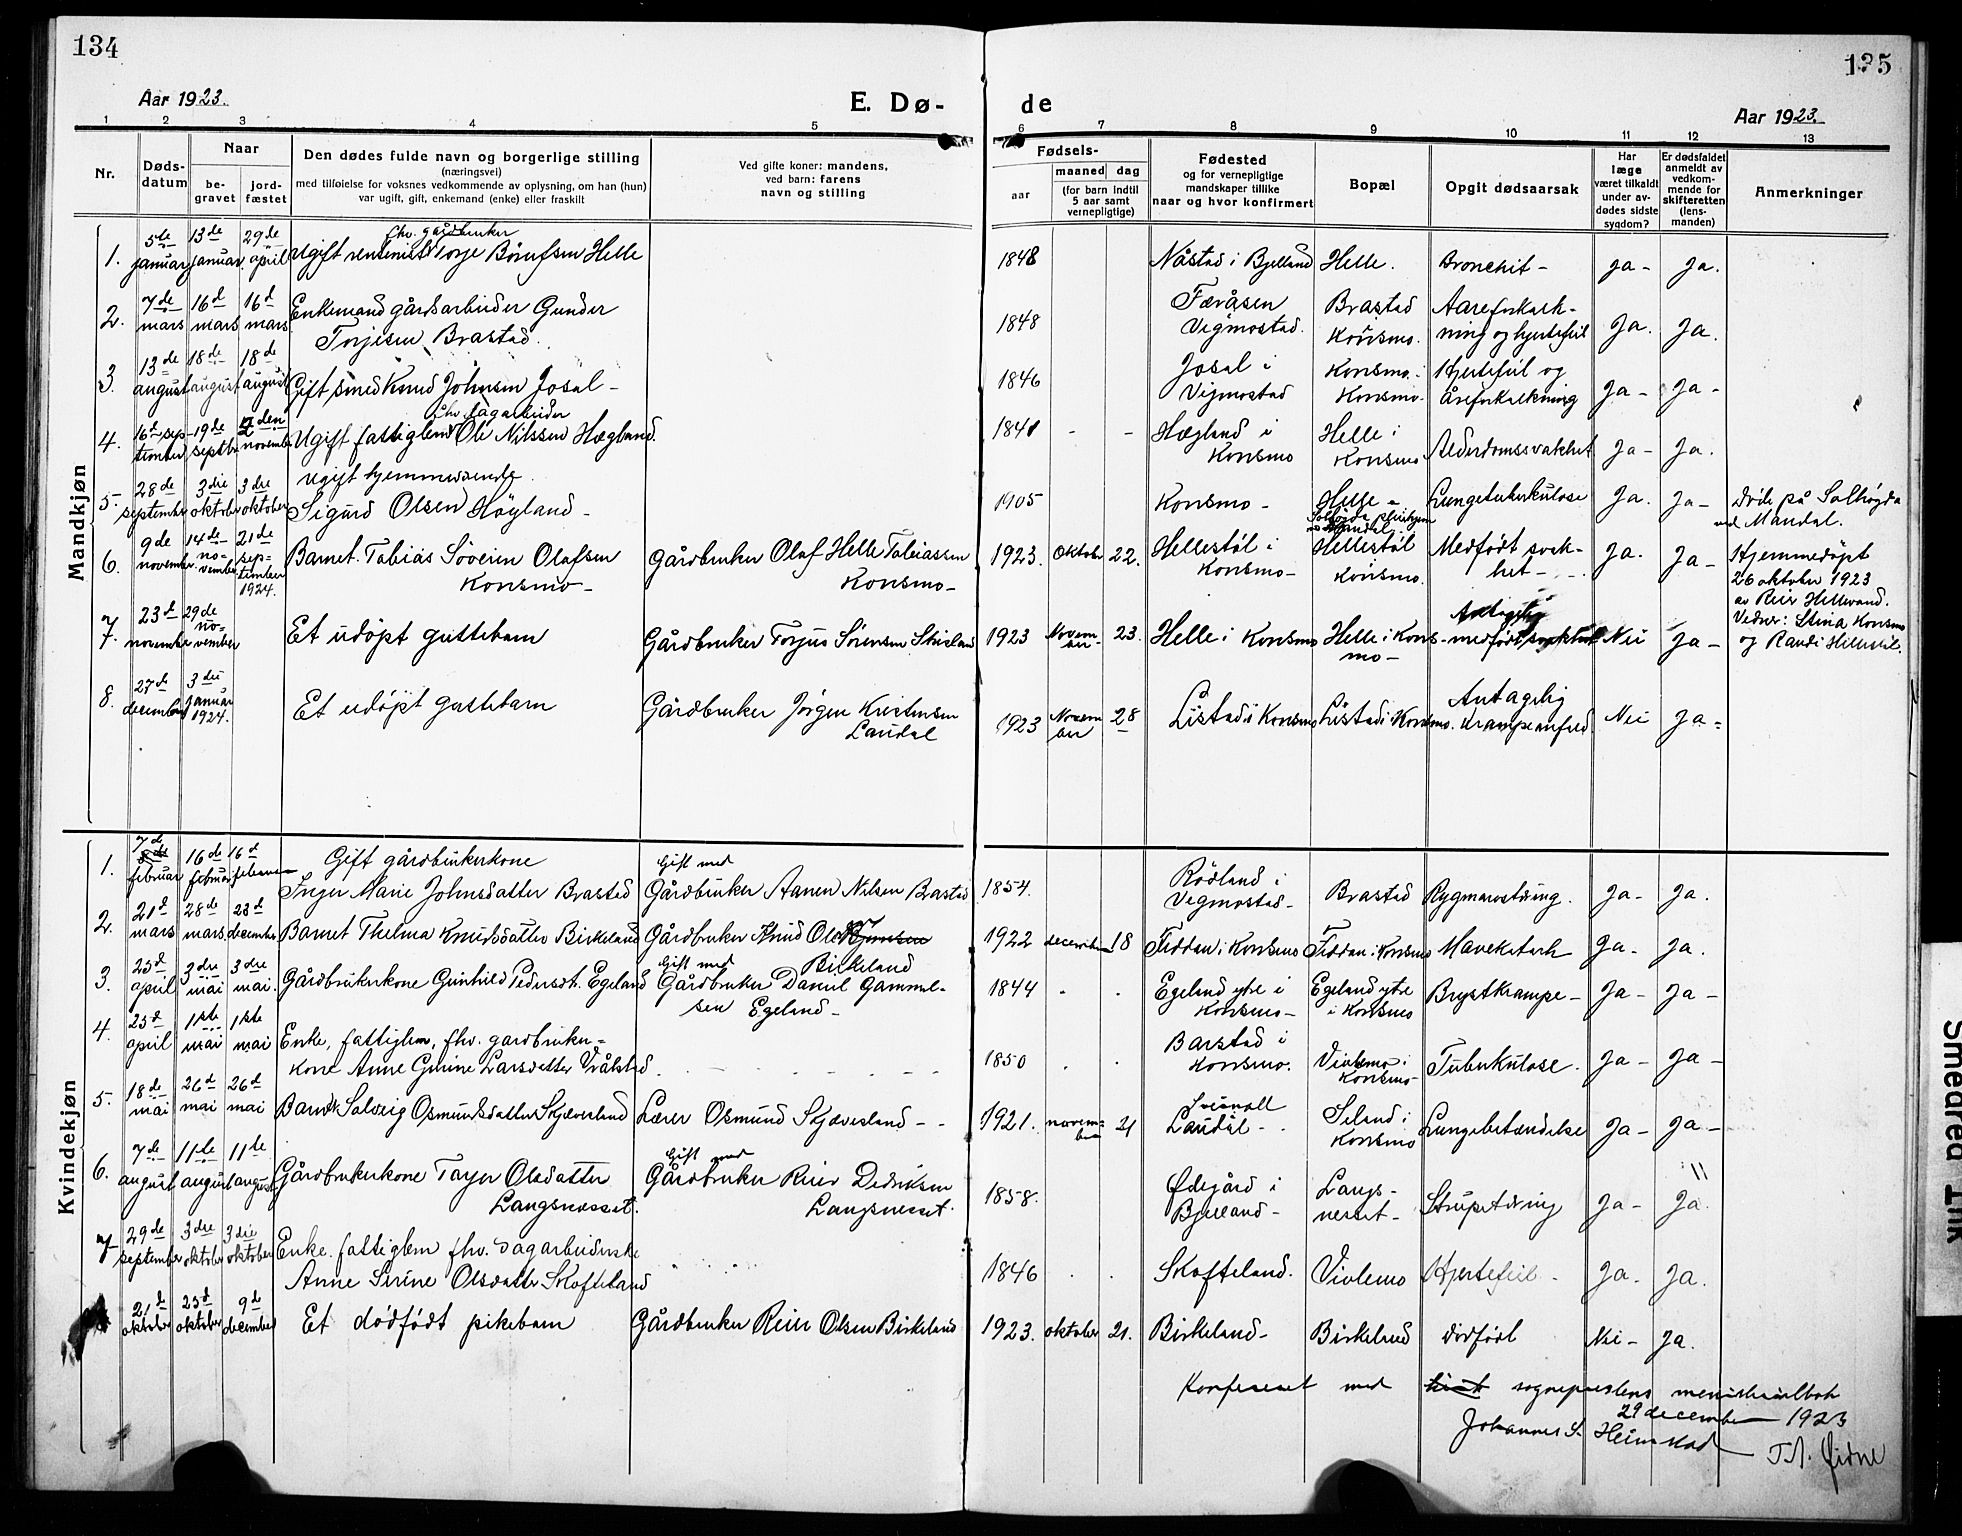 134
135
Aar 1923.
E. Dø-
de
Aar 1923.
1 2 3 4 5 6 7 8 9 10 11 12 13
Nr.
Døds-
datum
Naar
be-
gravet
jord-
fæstet
Den dødes fulde navn og borgerlige stilling
(næringsvei)
med tilføielse for voksnes vedkommende av oplysning, om han (hun)
var ugift, gift, enkemand (enke) eller fraskilt
Ved gifte koner: mandens,
ved barn: farens
navn og stilling
Fødsels-
aar
maaned dag
(for barn indtil
5 aar samt
vernepligtige)
Fødested
og for vernepligtige
mandskaper tillike
naar og hvor konfirmert
Bopæl
Opgit dødsaarsak
Har
læge
været tilkaldt
under av-
dødes sidste
sygdom?
Er dødsfaldet
anmeldt av
vedkom-
mende for
skifteretten
(lens-
manden)
Anmerkninger
Mandkjøn
1. 5te januar 13de januar 29de april
fhv. gårdbruker
Ugift rentenist Torje Börufsen Helle
1848 Nåstad i Bjelland Helle. Bronchit - Ja - Ja.
2. 7de mars 16d mars 16d mars
Enkemand gårdsarbeider Gunder
Torjesen Brastad.
1848 Færåsen Vigmostad. Brastad Konsmo. Aareforkalk-
ning og hjertefeil Ja. Ja.
3. 13de august 18de august 18de august
Gift smed Knud Johnsen Josal -
1846 Josal i Vigmostad Konsmo i Konsmo. Hjertefeil og
åreforkalkning Ja - Ja -
4. 16d september 19de septbr 2den november
fhv. dagarbeider
Ugift fattiglem Ole Nilssen Hægland.
1841 - - Hægland i Konsmo Helle i Konsmo Alderdomssvakhet Ja - Ja.
5. 28de september 3die oktober 3die oktober
Ugift hjemmeværende.
Sigurd Olsen Höyland -
1905 Konsmo - Helle - Solhøgda pleiehjem Mandal - Lungetuberkulose Ja. Ja -
Døde på Solhøgda
ved Mandal.
6. 9de november 14de november 21de september 1924.
Barnet. Tobias Söverin Olafsen
Konsmo -
Gårdbruker Olaf Helle Tobiassen
Konsmo -
1923. Oktober 22. Hellestöl i Konsmo - Hellestöl Konsmo. Medfödt svak-
het - Ja. Ja -
Hjemmedöpt
26 oktober 1923
av Reier Hellevand.
Vidner: Stina Konsmo
og Randi Hillestöl.
7. 23d november 29de november
Et udöpt guttebarn
Gårdbruker Torjus Sörensen Skeieland
1923 November 23. Helle i Konsmo Helle i Kons-
mo - Antagelig
medfödt svakhet Nei Ja -
8. 27de december 3die januar 1924.
Et udöpt guttebarn
Gårdbruker Jørgen Kristensen
Laudal
1923 November 28 Listad i Konsmo Listad i Konsmo. Antagelig
krampeanfald Nei Ja -
Kvindekjøn
1. 7de februar 16de februar 16d februar
Gift gårdbrukerkone
Inger Marie Johnsdatter Brastad
Gift med
Gårdbruker Aanen Nilsen Brastad
1854. Rödland i Vegmostad - Brastad Rygmarvstæring. Ja - Ja.
2. 21d mars 28de mars 23d december
Barnet Thelma Knudsdatter Birkeland
Gårdbruker Knud Olsen
Birkeland
1922 december 18 Fiddan i Konsmo Fiddan i Konsmo Mavekatarh Ja - Ja.
3. 25d april 3die mai 3die mai.
Gårdbrukerkone Gunhild Pedersdt. Egeland
Gift med
Gårdbruker Daniel Gammel-
sen Egeland -
1844 - - Egeland ytre i Konsmo - Egeland ytre i Konsmo Brystkrampe - Ja - Ja -
4. 25d april 1ste mai 1ste mai
Enke, fattiglem, fhv. gardbruker-
kone Anne Gurine Larsdatter Vrålstad.
1850 . . Barstad i Konsmo. Vivlemo i Konsmo - Tuberkulose. Ja - Ja -
5. 18de mai 26d mai 26d mai
Barnet Solveig Osmundsdatter Skjæveland
Lærer Osmund Skjæveland - -
1921. november 21 Sveinall Laudal - - Seland i Konsmo Lungebetændelse Ja - Ja -
6. 7de august 11te august 11te august
Gårdbrukerkone Tayer Olsdatter
Langsnesset.
Gift med
Gårdbruker Reier Dedriksen
Langsnesset.
1858. Ødegård i Bjelland - Langs-
nesset - Strupetæring Ja - Ja.
7 29de september 3die oktober 3die oktober
Enke. fattiglem fhv. dagarbeiderske
Anne Serine Olsdatter Skofteland
1846 . . Skofteland. Vivlemo Hjertefeil - Ja - Ja.
21de oktober 25d oktober 9de december
Et dödfödt pikebarn
Gårdbruker Reier Olsen Birkeland
1923. oktober 21. Birkeland - Birkeland dödfödt Nei - Ja.
Konfereret med sogneprestens ministerialbok
29 december 1923
Johannes S. Heimstad T. A. Øidne
Smedrød Trik